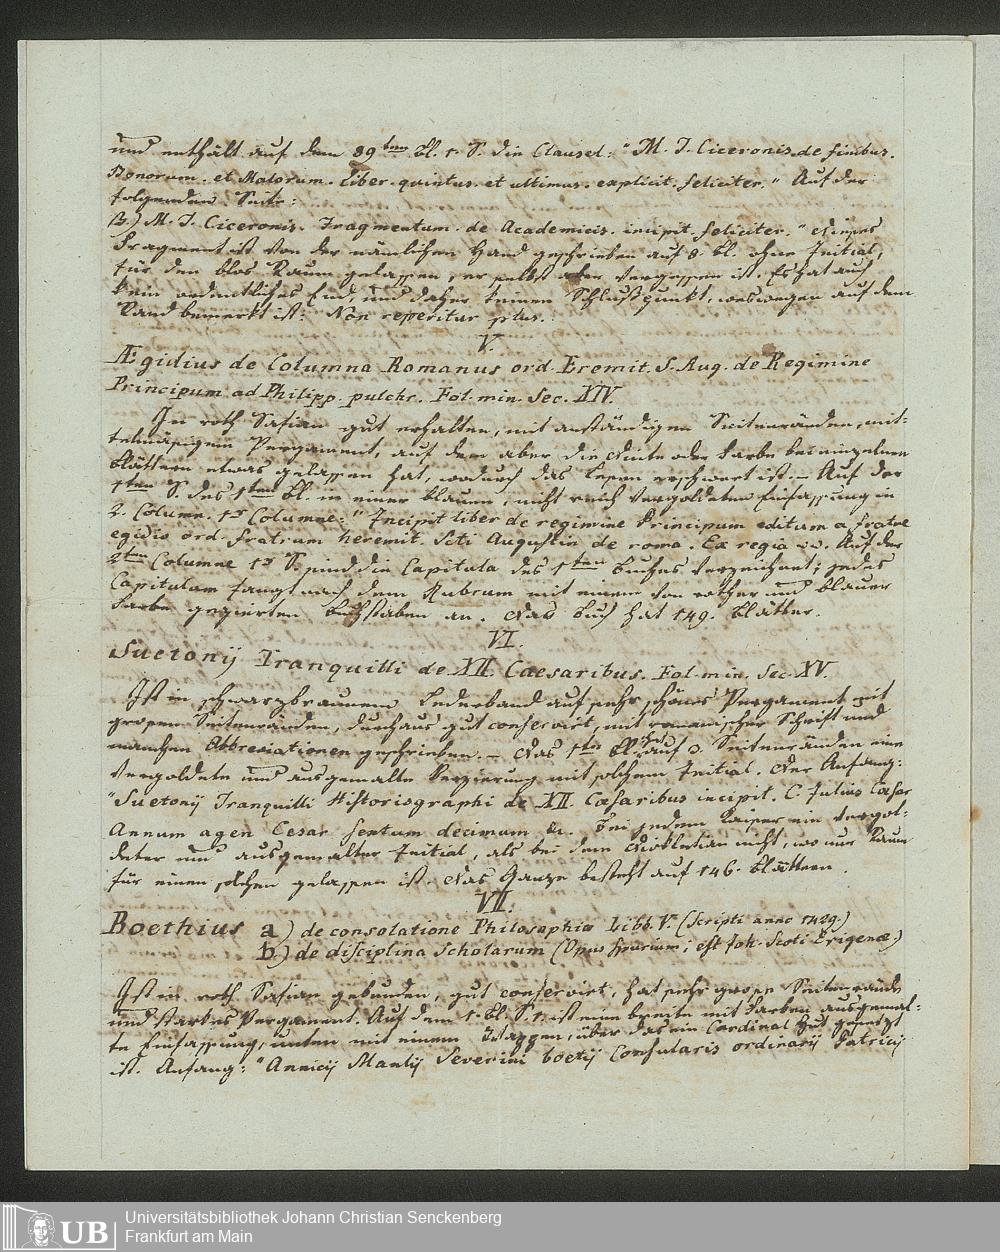 und enthält auf dem 89ten Bl. 1. S. die Clausel: "M. T. Ciceronis de finibus.
Bonorum. et Malorum. Liber. quintus. et ultimus. explicit. feliciter." Auf der
folgenden Seite:
B.) M. T. Ciceronis. Fragmentum. de Academicis. incipit. feliciter." Dieses
Fragment ist von der nämlichen Hand geschrieben auf 8 Bl. ohne Initial,
für den blos Raum gelassen, er selbst aber vergessen ist. Es hat auch
kein ordentliches End, und daher keinen Schlußpunkt, weswegen auf dem
Rand bemerkt ist: "Non reperitur plus."
V.
Ægidius de Columna Romanus ord. Eremit. S. Aug. de Regimine
Principum ad Philipp. pulchr. Fol. min. Sec. XIV.
In roth Safian gut erhalten, mit anständigen Seitenränden, mit-
telmäsigem Pergament, auf dem aber die Dinte oder Farbe bei einzelnen
Blättern etwas gelassen hat, wodurch das Lesen erschwert ist. – Auf der
1ten S. des 1ten Bl. in einer blauen, nicht reich vergoldeten Einfassung in
2. Column. 1r Columne: "Incipit liber de regimine Principum editum a fratre
egidio ord. fratrum heremit. Scti Augustin de roma. Ex regia Auf der
2ten Columne 1r S. sind die Capitula des 1ten Buches verzeichnet; jedes
Capitulum fangt nach dem Rubrum mit einem von rother und blauer
Farbe gezierten Buchstaben an. Das Buch hat 149. Blätter.
VI.
Suetonij Tranquilli de XII. Caesaribus. Fol. min. Sec. XV.
Ist in schwarzbraunem Lederband auf sehr schönes Pergament mit
grosen Seitenränden, durchaus gut conservirt, mit romanischer Schrift und
manchen Abbreviationen geschrieben. – Das 1te Bl. hat auf 3. Seitenränden eine
vergoldete und ausgemalte Verzierung mit solchem Initial. Der Anfang:
"Suetonij Tranquilli Historiographi de XII. Cæsaribus incipit. C. Julius Cæsar
Annum agen Cesar sextum decimum &c. Bei jedem Kaiser ein vergol-
deter und ausgemalter Initial, als bei dem Diokletian nicht, wo nur Raum
für einen solchen gelassen ist. Das Ganze besteht auf 146. Blättern.
VII.
Boethius a) de consolatione Philosophiæ Libb. V. (Scripti anno 1429.)
b) de disciplina Scholarum (Opus spurium; est Joh. Scoti Erigenæ.)
Ist in roth Safian gebunden, gut conservirt, hat sehr grose Seitenrände
und starkes Pergament. Auf dem 1. Bl. S. 1. ist eine breite mit Farben ausgemal-
te Einfassung, unten mit einem Wappen, über das ein Cardinal Hut gesetzt
ist. Anfang: "Annicij Manlij Severini boetij Consularis ordinarij Patricij
Universitätsbibliothek Johann Christian Senckenberg
Frankfurt am Main
UB